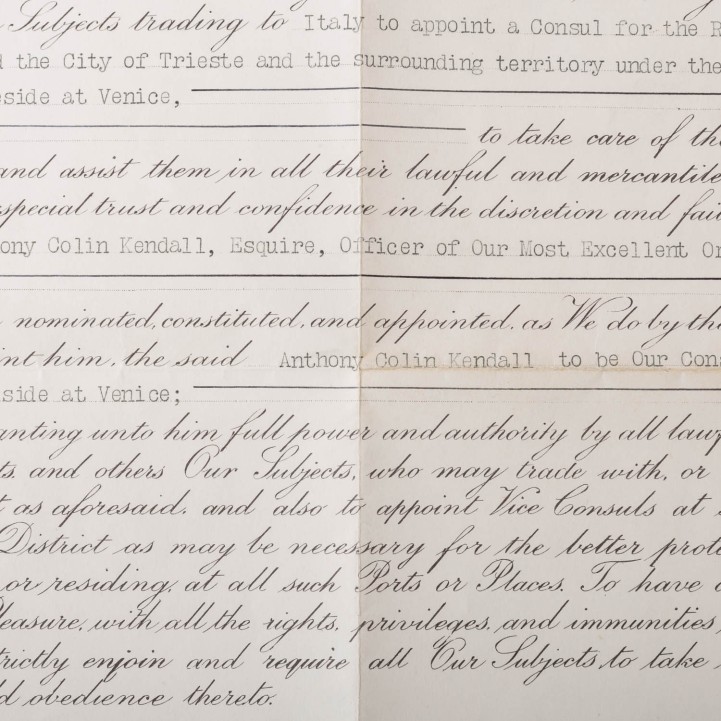 Subjects trading to Italy to appoint a Consul for the R
the City of Trieste and the surrounding territory under the
eside at Venice,
to take care of the
and assist them in all their lawful and mercantile
special trust and confidence in the discretion and fai
ony Colin Kendall, Esquire, Officer of Our Most Excellent Or
nominated, constituted, and appointed, as We do by the
int him, the said Anthony Colin Kendall to be Our Cons
side at Venice;
anting unto him full power and authority by all lawf
ts and others Our Subjects, who may trade with, or
t as aforesaid, and also to appoint Vice Consuls at
District as may be necessary for the better prote
or residing, at all such Ports or Places. To have
leasure, with all the rights, privileges, and immunities,
trictly enjoin and require all Our Subjects, to take
d obedience thereto.